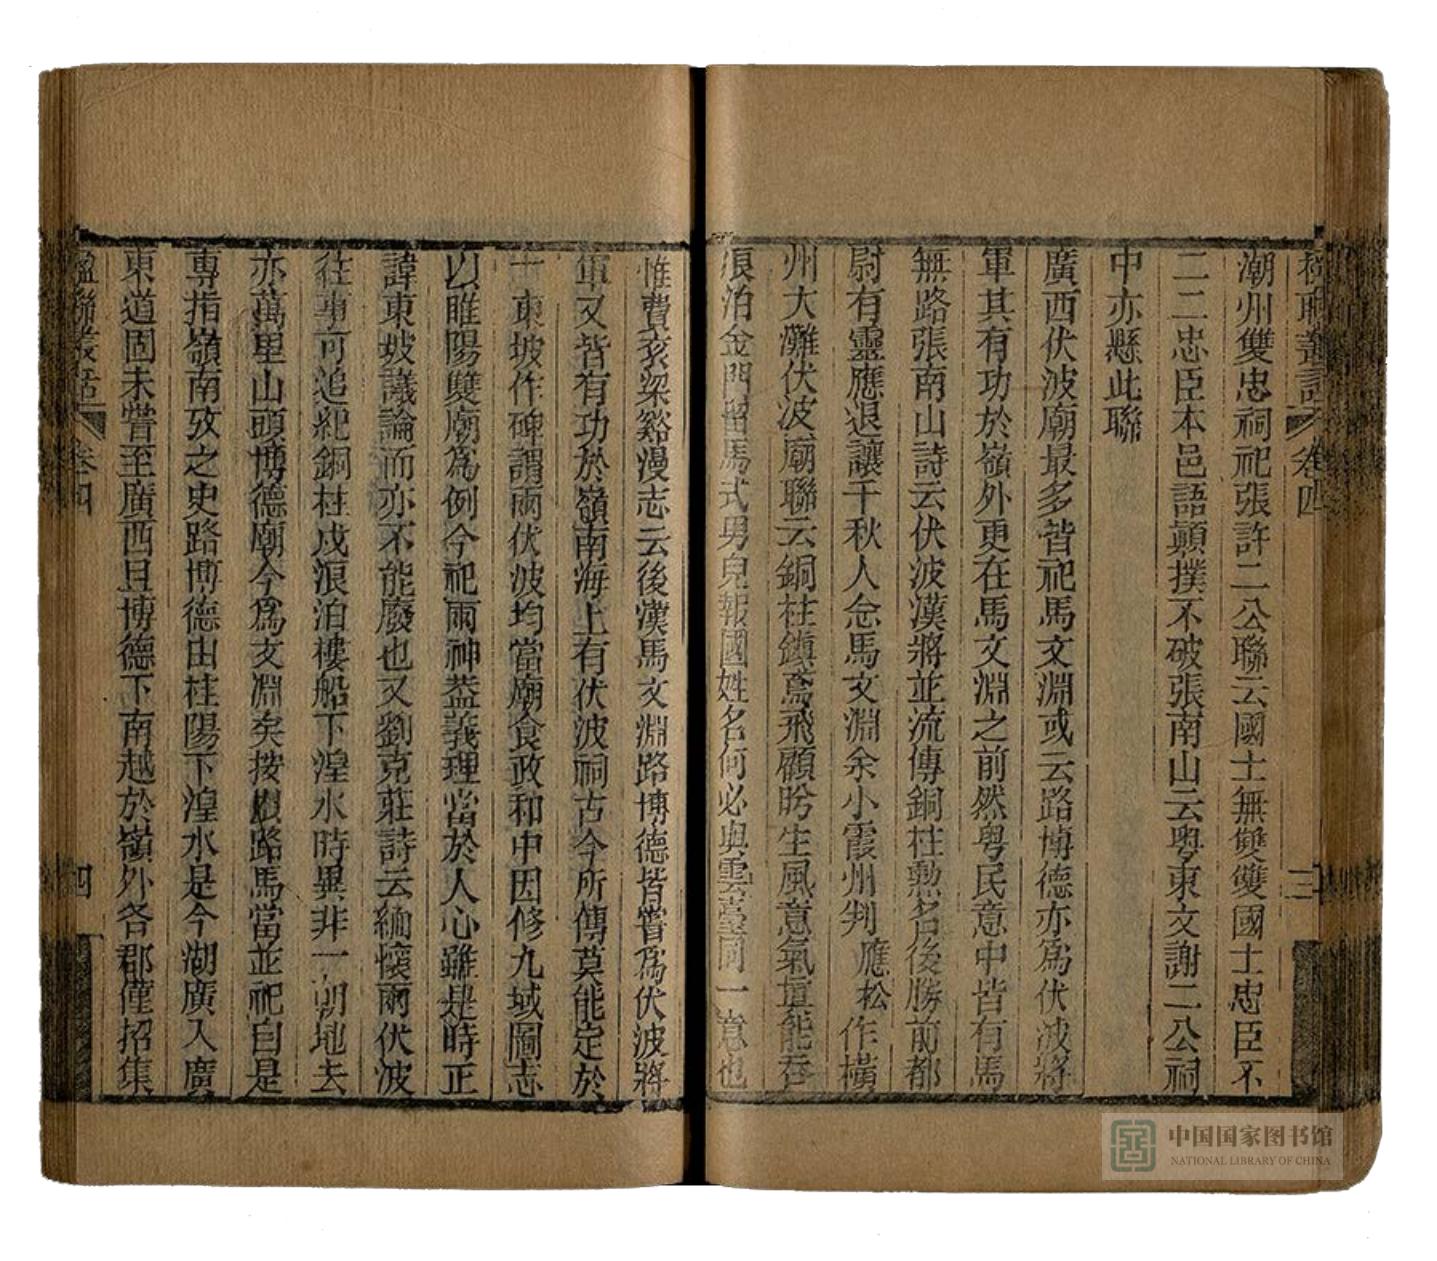 楹聯叢話 卷四 三
潮州雙忠祠祀張許二公聯云國士無雙雙國士忠臣不
二二忠臣本邑語顛撲不破張南山云粵東文謝二公祠
中亦縣此聯
廣西伏波廟最多皆祀馬文淵或云路博德亦爲伏波將
軍其有功於嶺外更在馬文淵之前然粵民意中皆有馬
無路張南山詩云伏波漢將並流傳銅柱勲名後勝前都
尉有靈應退讓千秋人念馬文淵余小霞州判應松作橫
州大灘伏波廟聯云銅柱鎮鳶飛顧盻生風意氣壇能吞
浪泊金門留馬式男兒報國姓名何必與雲臺同一意也
惟費衮梁谿漫志云後漢馬文淵路博德皆嘗爲伏波將
軍又皆有功於嶺南海上有伏波祠古今所傳莫能定於
一東坡作碑謂兩伏波均當廟食政和中因修九域圖志
以睢陽雙廟爲例今祀兩神葢義理當於人心雖是時正
諱東坡議論而亦不能廢也又劉克莊詩云緬懷兩伏波
往事可追紀銅柱戍浪泊樓船下湟水時異非一朝地去
亦萬里山頭博德廟今爲文淵矣按嶺路馬當並祀自是
專指嶺南攷之史路博德由桂陽下湟水是今湖廣入廣
東道固未嘗至廣西且博德下南越於嶺外各郡僅招集
楹聯叢話 卷四 四
中国国家图书馆
NATIONAL LIBRARY OF CHINA